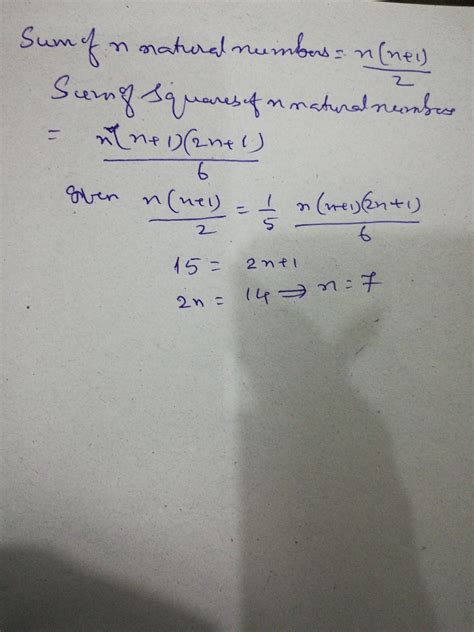 Sum of n natural numbers = n(n+1)/2
Sum of squares of n natural numbers
= n(n+1)(2n+1)/6
Given n(n+1)/2 = 1/5 n(n+1)(2n+1)/6
15 = 2n+1
2n = 14 ⇒ n = 7